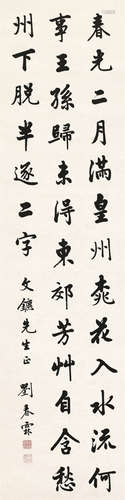 春光二月滿皇州桃花入水流何
事王孫歸未得東郊芳艸自含愁
州下脫半逐二字
文鑣先生正
劉春霖